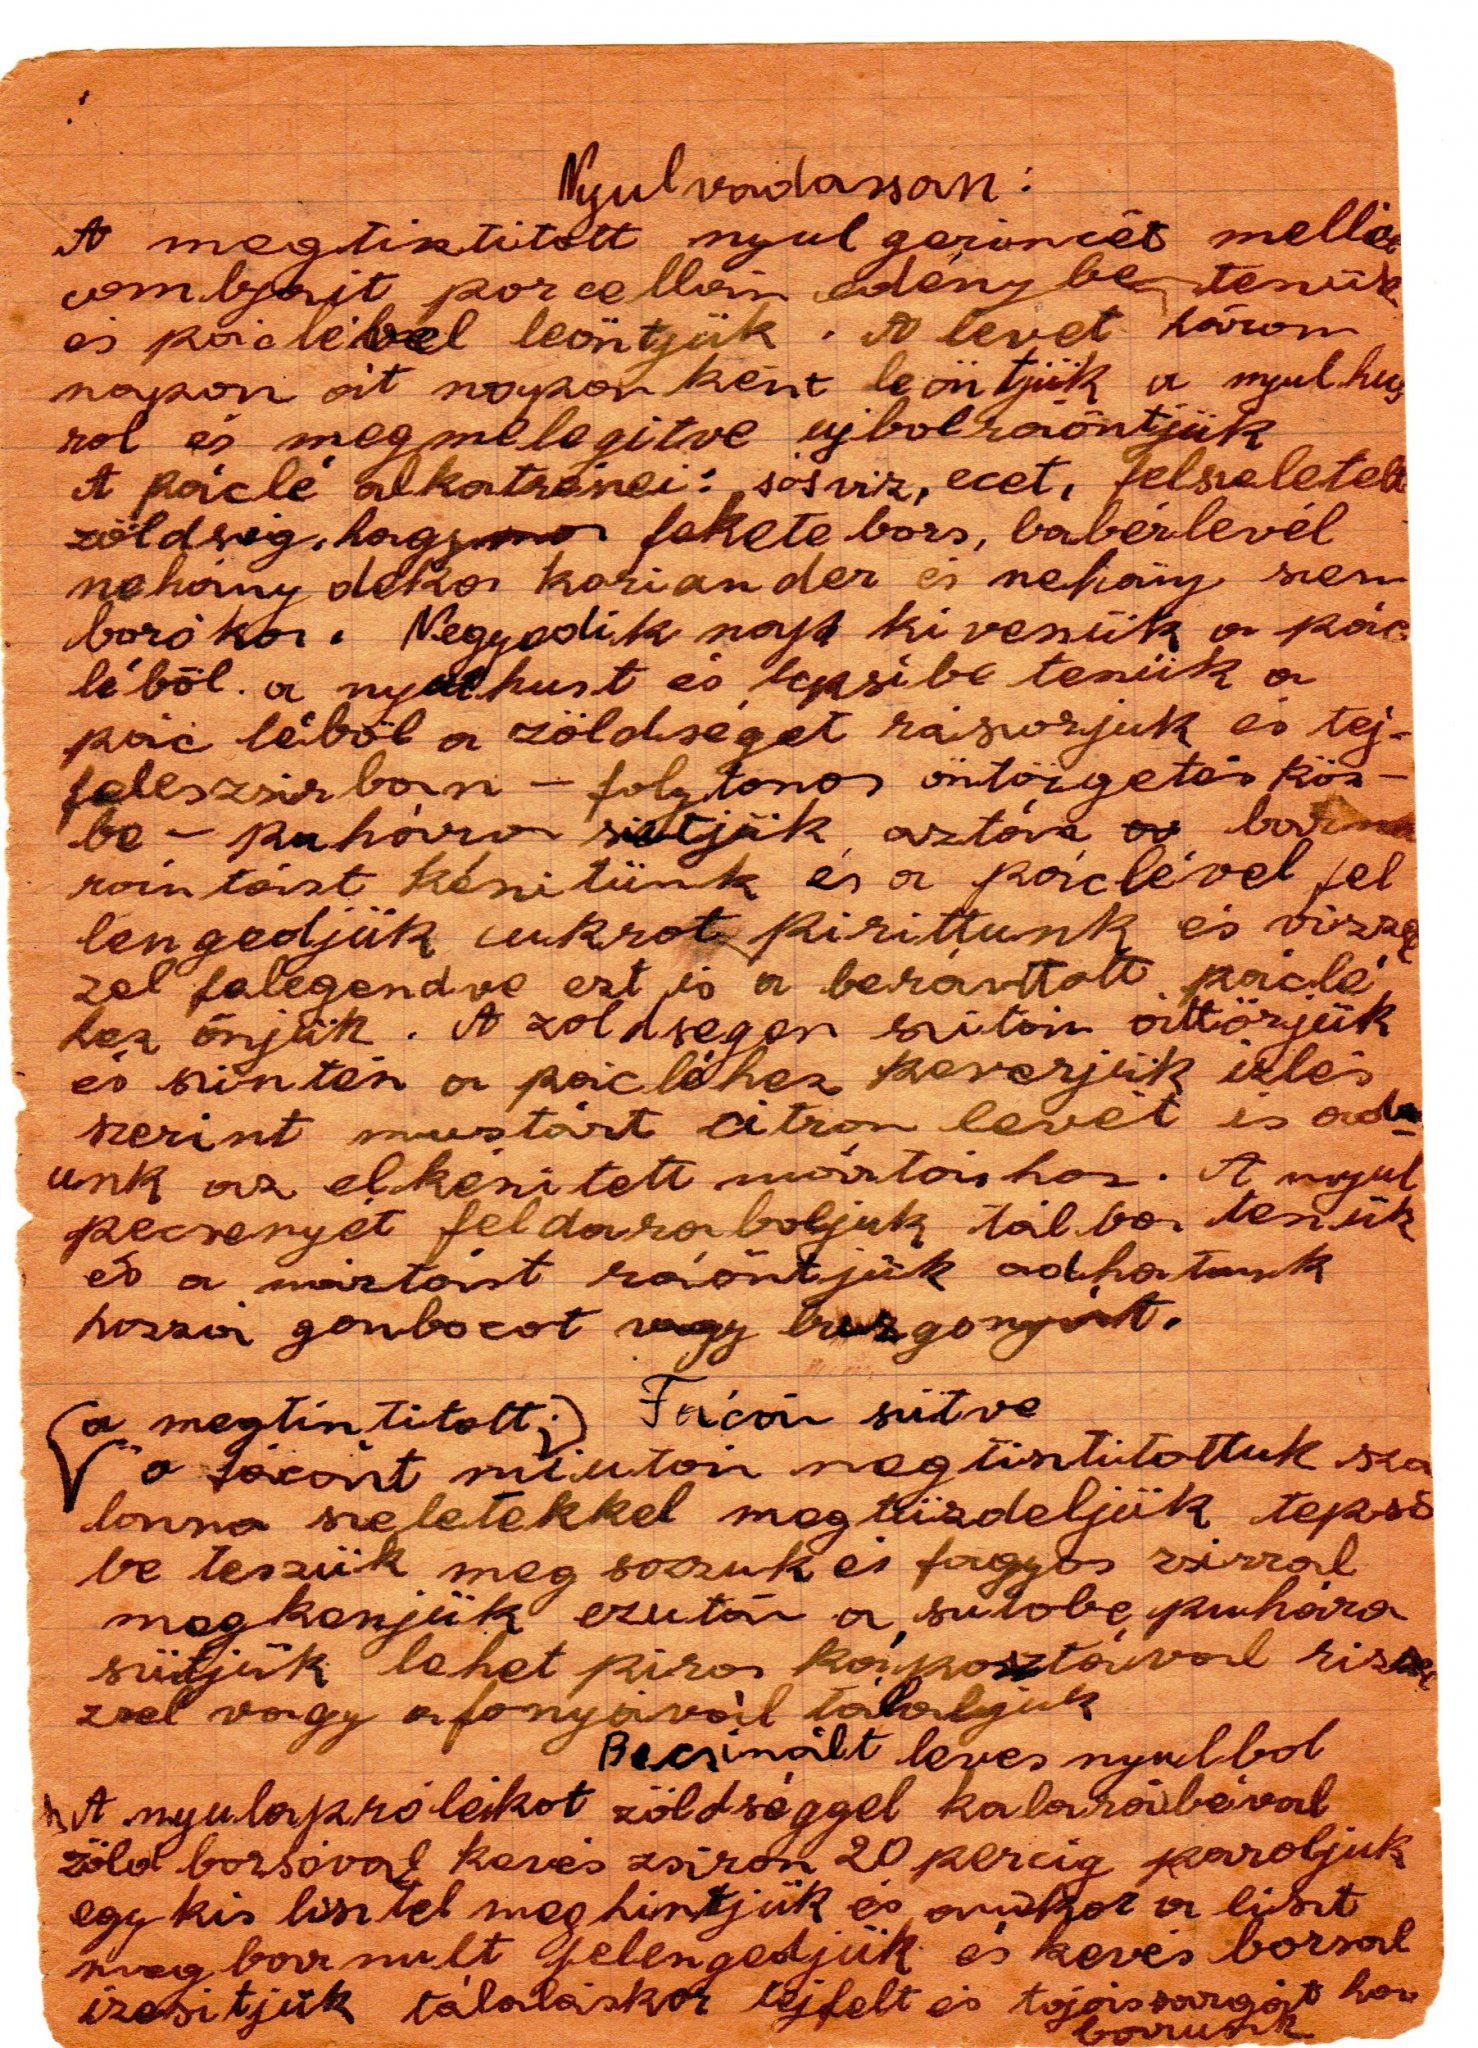 Nyul vadassan:
A megtiktitott nyul gerincét mellét
combjait porcellán edénybe tesük
és páclével leöntjük. A levet három
napon át naponként leöntjük a nyulhus
rol és megmelegitve ujbol ráöntjük
A páclé alkatrészei: sósviz, ecet, felszeletelt
zöldség, hagyma fekete bors, babérlevél
nehány deka koriander és nehány szem
boróka. Negyedik nap kivesük a pác
léböl a nyulhust és tepsibe tesük a
pác léböl a zöldséget rászorjuk és tej-
feleszsirban - folytonos öntözgetés köz-
be - puhára sütjük aztán a barna
rántást késitünk és a páclével fel
lengedjük cukrot pirittunk és vizze
zel felegendve ezt is a berántott páclé
hez önjük. A zoldsegen szitán áttörjük
és szintén a pácléhez keverjük izlés
szerint mustárt citron levét is ad-
unk az elkészitett mártáshoz. A nyul
pecsenyét feldaraboljuk tálba tesük
és a mártást ráöntjük adhatunk
hozzá gonbocot vagy burgonyát.
(a megtintitott;) Fácán sütve
a fácánt miután megtistitottuk sza
lonna szeletekkel megtüzdeljük tepsi
be teszük meg sozzuk és fagyos zsirral
megkenjük ezután a sutobe puhára
sütjük lehet piros káposztával rizs
zsel vagy afonyával tálaljuk
Becsinált leves nyulbol
A nyulaprólékot zöldséggel kalarábéval
zöld borsóval kevés zsiron 20 percig paroljuk
egy kis lisztel meghintjük és amikor a liszt
meg barnult felengedjük és kevés borsal
izesitjük tálaláskor tejfelt és tojássargát ha
barunk